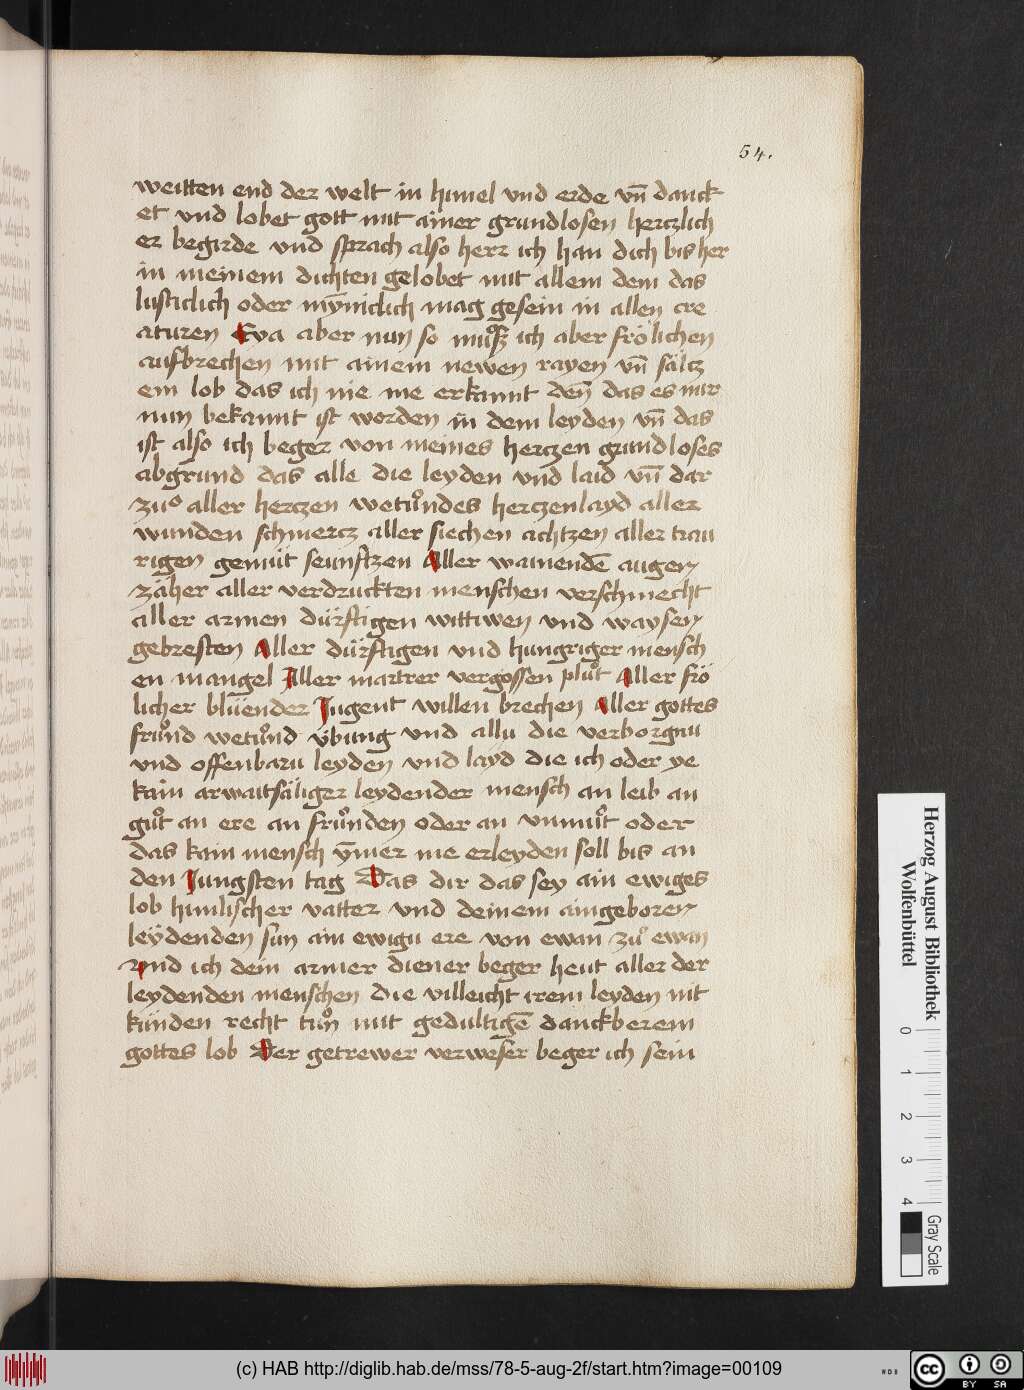 54.
weitten end der welt in himel vnd erde vn̄ danck
et vnd lobet gott mit ainer grundlosen hertzlich
er begirde vnd sprach also herr ich han dich bis her
in meinem dichten gelobet mit allem dem das
lusticlich oder mÿniclich mag gesein in allen cre
aturen Eya aber nun so muͦsz ich aber frölichen
aufbrechen mit ainem newen rayen vn̄ sältz
em lob das ich nie me erkannt den̄ das es mir
nun bekannt ist worden in dem leyden vn̄ das
ist also ich beger von meines hertzen grundloses
abgrund das alle die leyden vnd laid vn̄ dar
zuͦ aller hertzen wetuͦndes hertzenlayd aller
wunden schmertz aller siechen achtzen aller trau
rigen gemüt seunftzen Aller wainendē augen
zäher aller verdruckten menschen verschmecht
aller armen dürftigen wittiwen vnd waysen
gebresten Aller dürftigen vnd hungriger mensch
en mangel Aller martrer vergossen pluͦt Aller frö
licher blüender Jugent willen brechen Aller gottes
fruͦnd wetuͦnd vbung vnd allu die verborgnu
vnd offenbaru leyden vnd layd die ich oder ye
kain arwaitsäliger leydender mensch an leib an
guͦt an ere an fruͦnden oder an vnmuͦt oder
das kain mensch ÿmer me erleyden soll bis an
den Jungsten tag Das dir das sey ain ewiges
lob himlischer vatter vnd deinem aingeboren
leÿdenden sun ain ewigu ere von ewan zuͦ ewan
vnd ich dein armer diener beger heut aller der
leydenden menschen die villeicht irem leyden nit
künden recht tuͦn mit gedultigē danckberem
gottes lob Der getrewer verweser beger ich sein
Herzog August Bibliothek
Wolfenbüttel
0 1 2 3 4
Gray Scale
(c) HAB http://diglib.hab.de/mss/78-5-aug-2f/start.htm?image=00109
WDB
cc BY SA